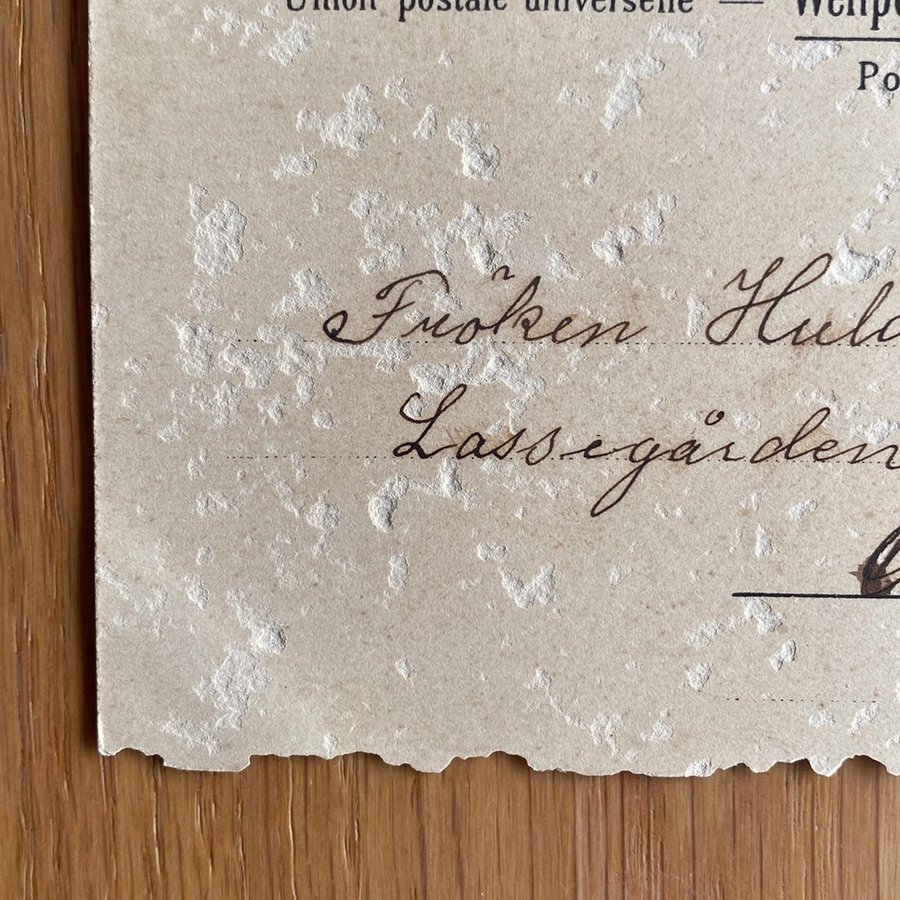 Union postale universelle — Weltpo
Po
Fröken Huld
Lassegården